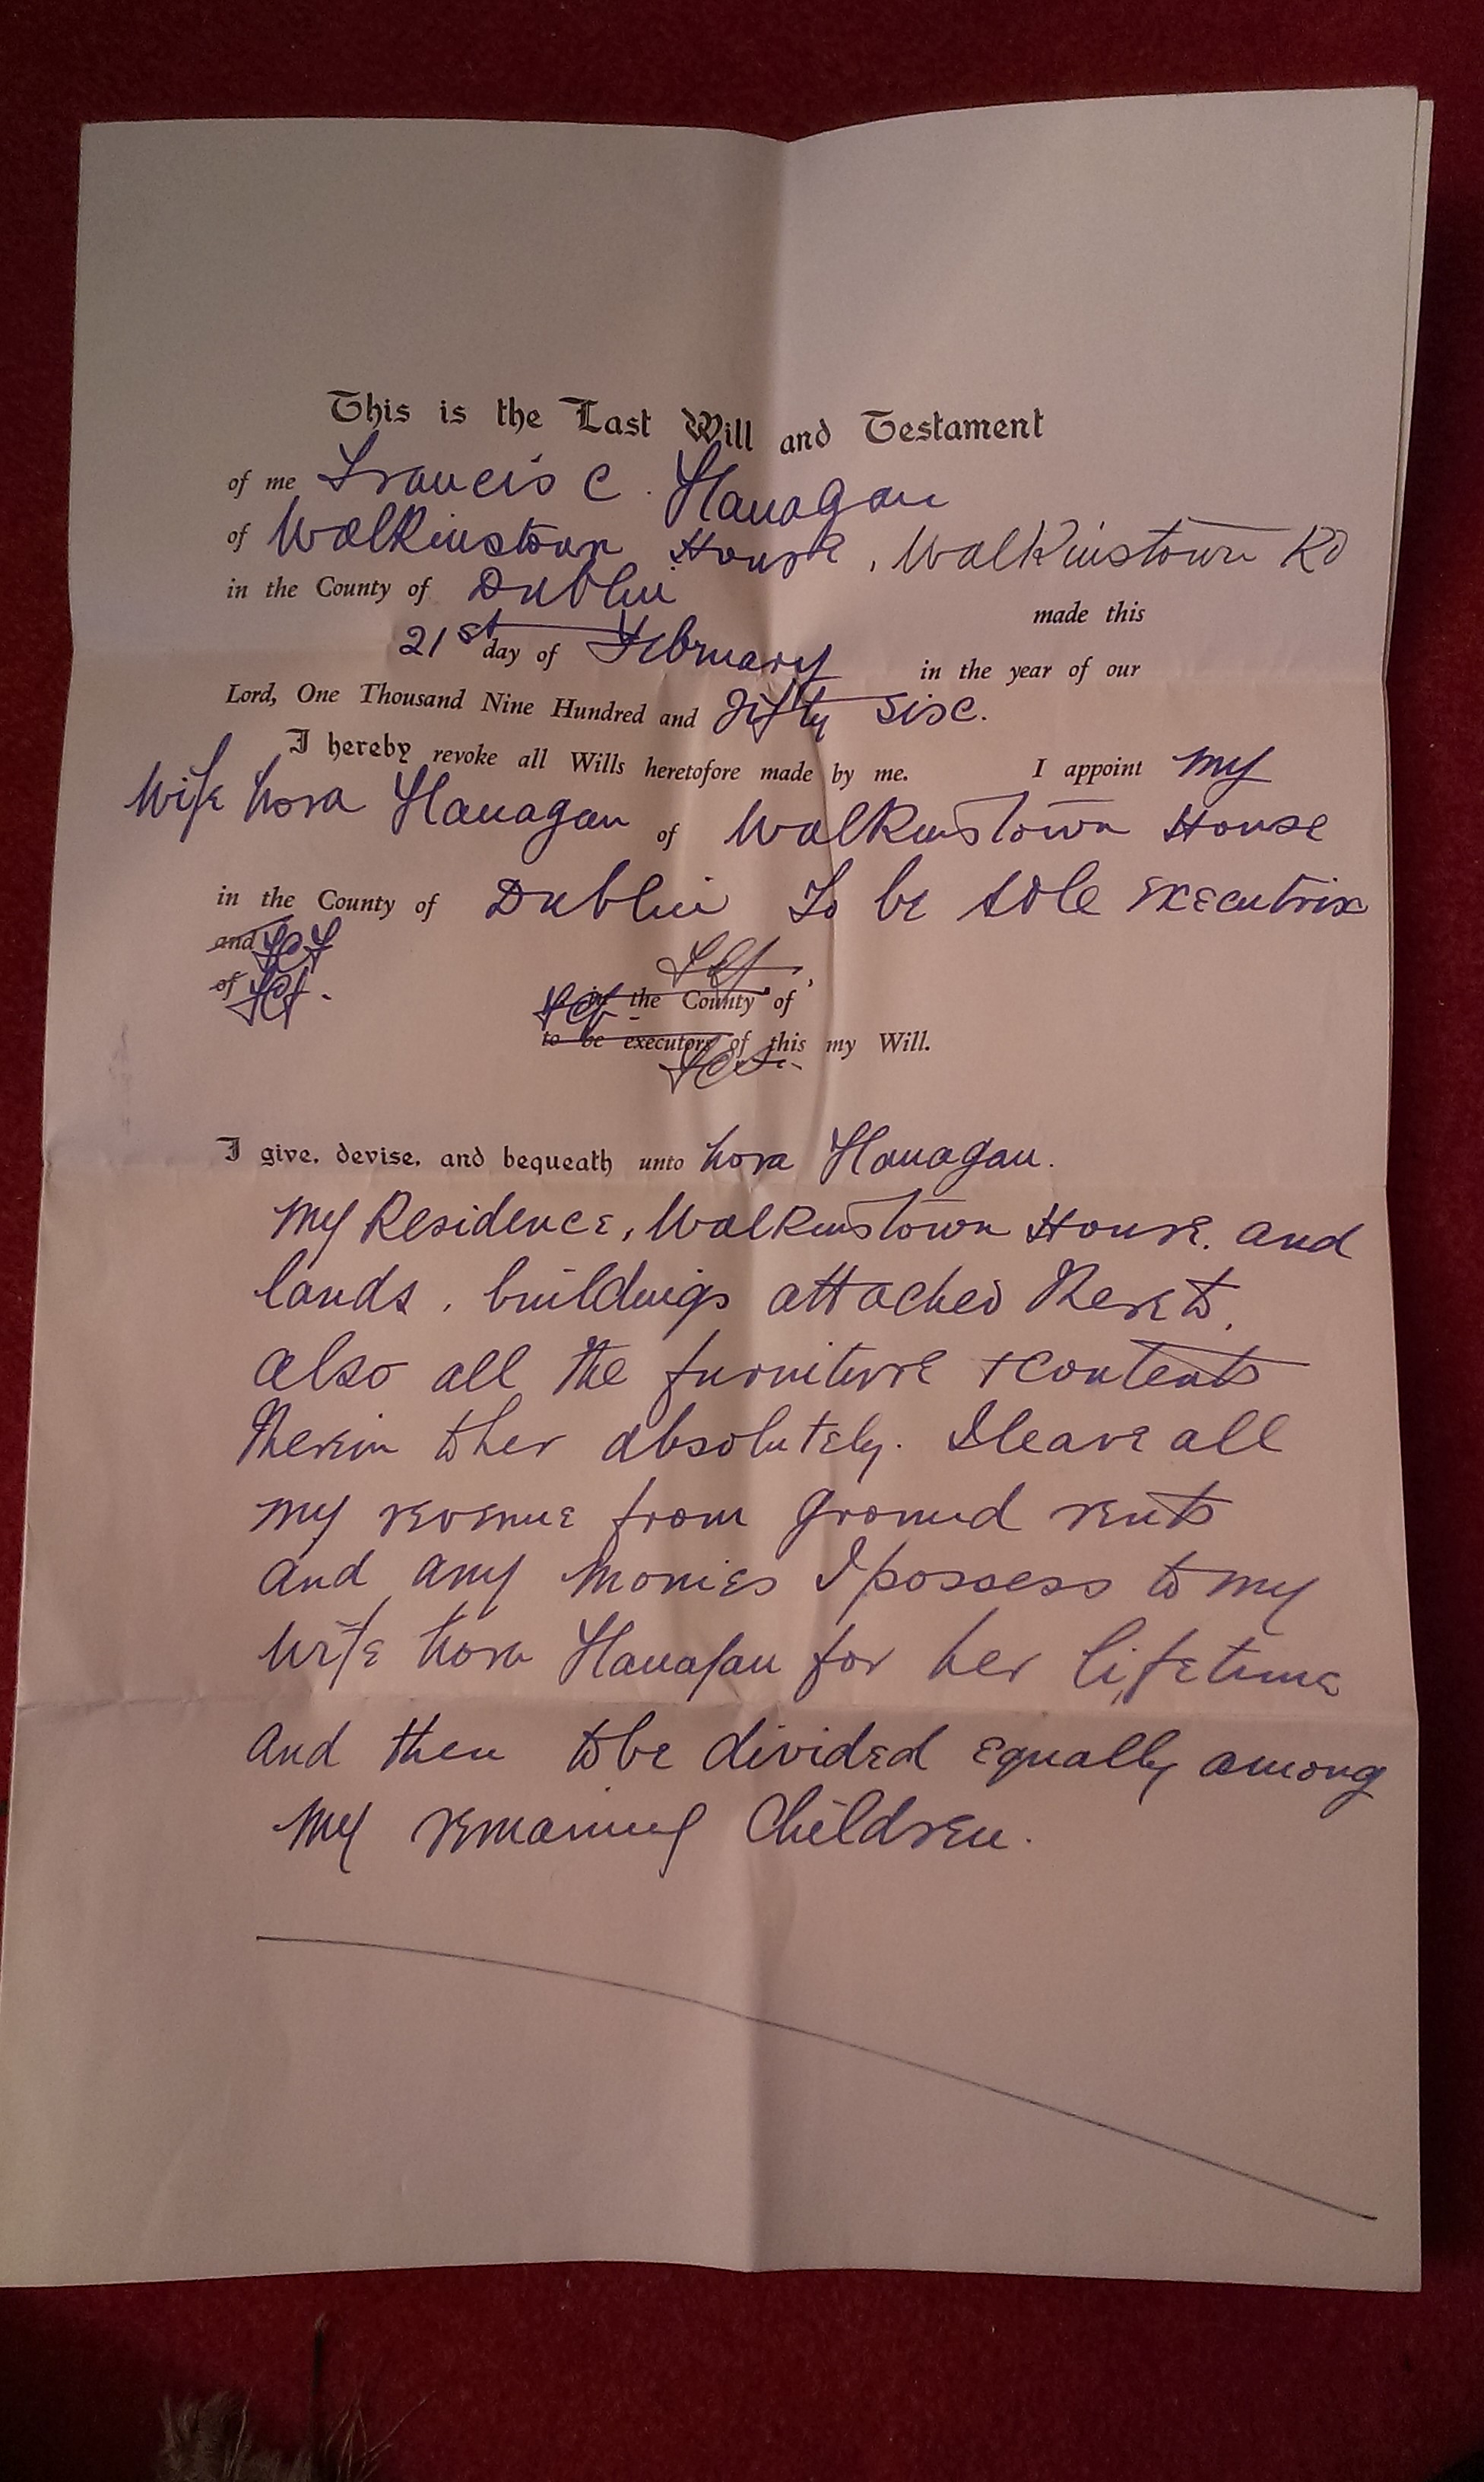 This is the Last Will and Testament
of me Francis C. Flanagan
of Walkinstown House, Walkinstown Rd
in the County of Dublin made this
21st day of February in the year of our
Lord, One Thousand Nine Hundred and fifty six.
I hereby revoke all Wills heretofore made by me. I appoint my
wife Nora Flanagan of Walkinstown House
in the County of Dublin To be sole executrix
and FCF
of FCF.
FCF
FCF in the County of
to be executors of this my Will.
FCF.
I give, devise, and bequeath unto Nora Flanagan.
My Residence, Walkinstown House. and
lands, buildings attached thereto,
also all the furniture + contents
therein to her absolutely. I leave all
my revenue from ground rents
and any monies I possess to my
wife Nora Flanagan for her lifetime
and then to be divided equally among
my remaining Children.